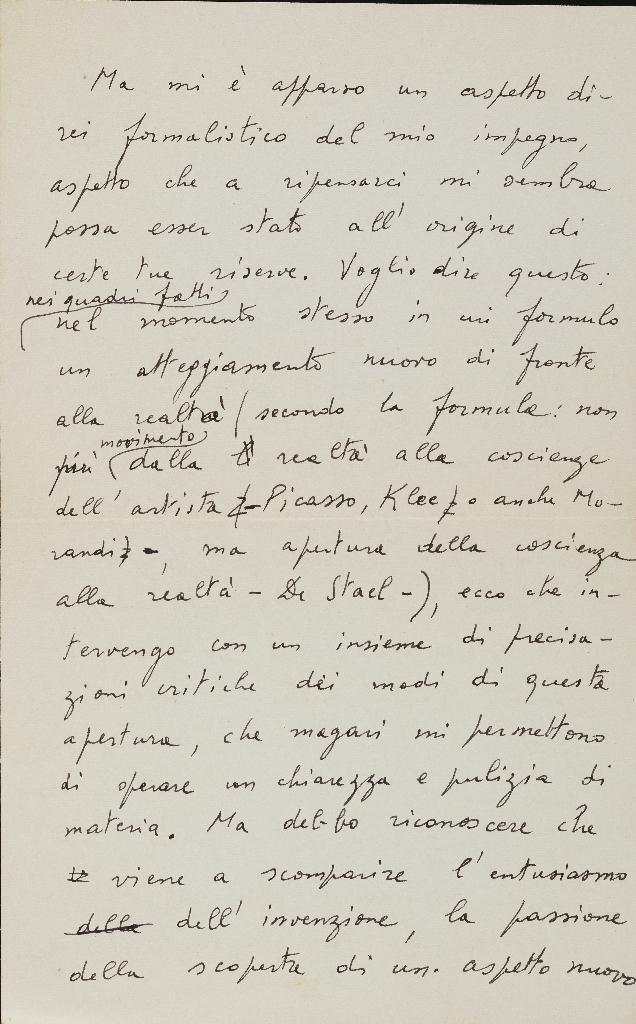 Ma mi è apparso un aspetto di-
rei formalistico del mio impegno,
aspetto che a ripensarci mi sembra
possa esser stato all' origine di
certe tue riserve. Voglio dire questo:
nei quadri fatti
nel momento stesso in cui formulo
un atteggiamento nuovo di fronte
alla realtà (secondo la formula: non
movimento
più dalla realtà alla coscienza
dell' artista - Picasso, Klee o anche Mo-
randi -, ma apertura della coscienza
alla realtà - De Stael -), ecco che in-
tervengo con un insieme di precisa-
zioni critiche dei modi di questa
apertura, che magari mi permettono
di operare con chiarezza e pulizia di
materia. Ma debbo riconoscere che
viene a scomparire l' entusiasmo
della dell' invenzione, la passione
della scoperta di un aspetto nuovo